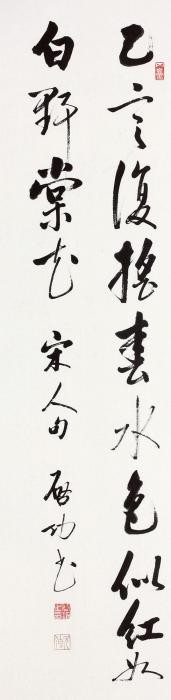 已定復搖春水色似紅如
白野棠花 宋人句 啟功書